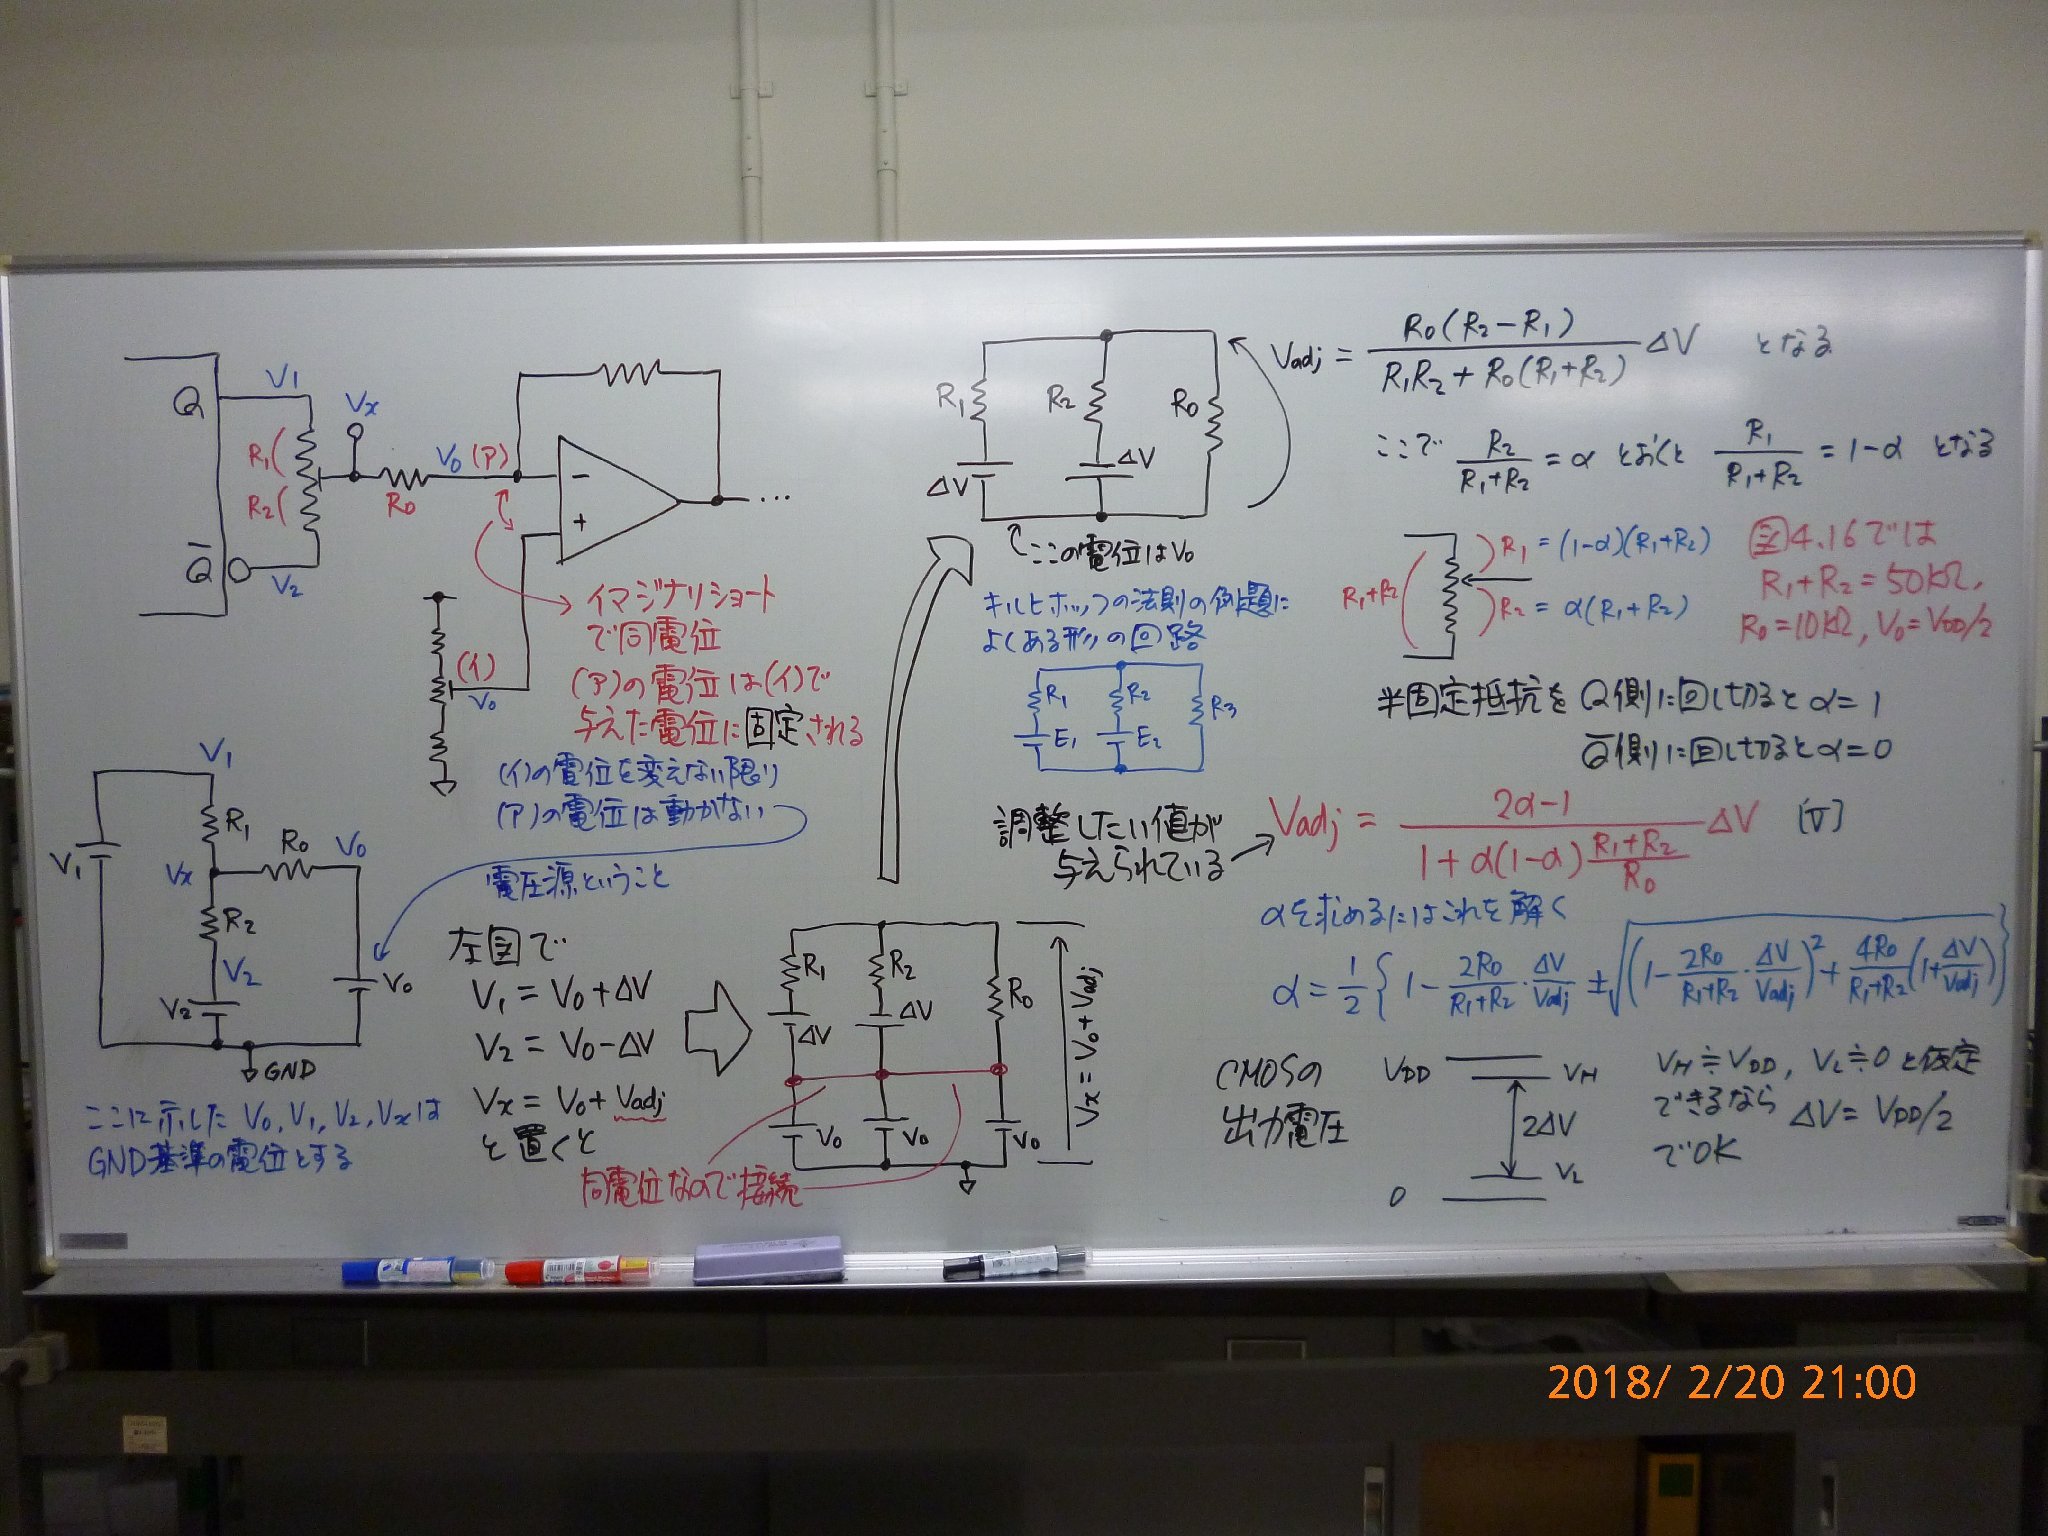 Q
V1
Vx
R1
R2
Q̄
V2
R0
V0 (ア)
−
+
...
イマジナリショート
で同電位
(ア)の電位は(イ)で
与えた電位に固定される
(イ)
V0
(イ)の電位を変えない限り
(ア)の電位は動かない
電圧源ということ
V1
V1
R1
R0
V0
Vx
R2
V2
V2
V0
GND
ここに示した V0, V1, V2, Vxは
GND基準の電位とする
左図で
V1 = V0+ΔV
V2 = V0−ΔV
Vx = V0+Vadj
と置くと
R1
R2
R0
ΔV
ΔV
V0
V0
V0
Vx = V0 + Vadj
同電位なので接続
R1
R2
R0
ΔV
ΔV
ここの電位はV0
キルヒホッフの法則の例題に
よくある形の回路
R1
R2
R3
E1
E2
Vadj = R0(R2−R1) / R1R2 + R0(R1+R2) ΔV となる
ここで R2 / R1+R2 = α とおくと R1 / R1+R2 = 1−α となる
R1+R2
R1 = (1−α)(R1+R2)
R2 = α(R1+R2)
図4.16では
R1+R2 = 50kΩ,
R0=10kΩ, V0=VDD/2
半固定抵抗を Q側に回し切ると α=1
Q̄側に回し切ると α=0
調整したい値が
与えられている
Vadj = 2α−1 / 1+α(1−α) R1+R2 / R0 ΔV [V]
αを求めるにはこれを解く
α = 1/2 { 1 − 2R0 / R1+R2 · ΔV / Vadj ± √(1 − 2R0 / R1+R2 · ΔV / Vadj)² + 4R0 / R1+R2 (1+ ΔV / Vadj) }
CMOSの
出力電圧
VDD
VH
2ΔV
VL
0
VH≒VDD, VL≒0 と仮定
できるなら
ΔV = VDD/2
でOK
2018/ 2/20 21:00